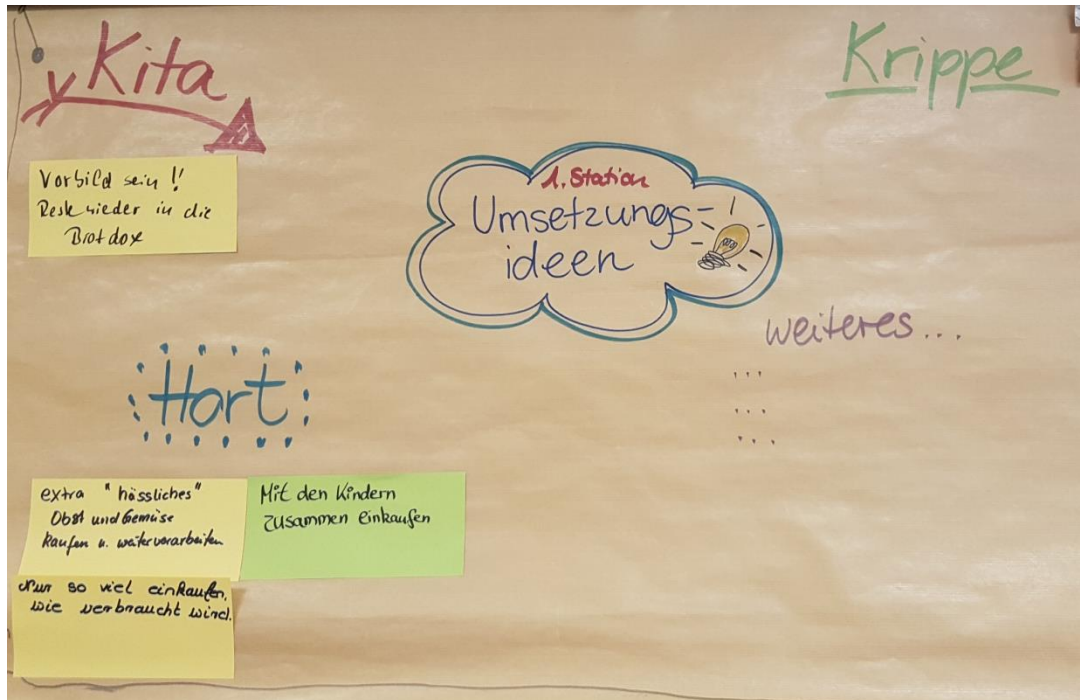 Kita
Krippe
Vorbild sein !!
Rest wieder in die
Brotdox
1. Station
Umsetzungs-
ideen
weiteres...
...
...
...
Hort
extra "hässliches"
Obst und Gemüse
kaufen u. weiterverarbeiten
Mit den Kindern
zusammen einkaufen
Nur so viel einkaufen,
wie verbraucht wird.